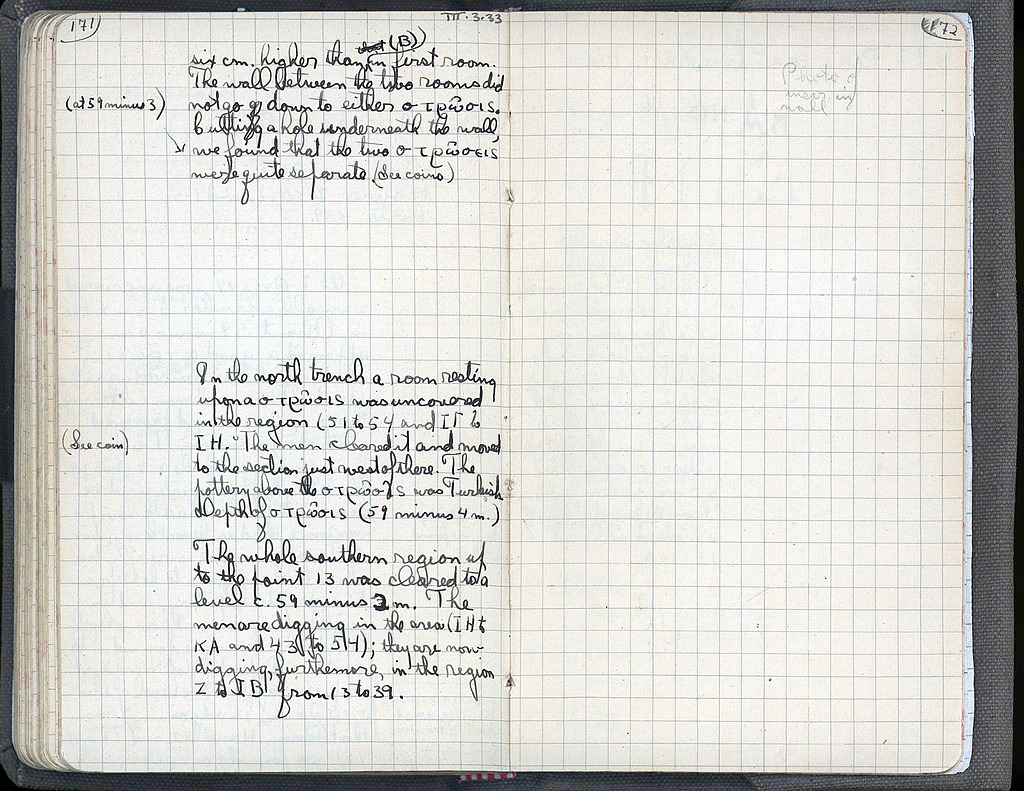 171
III·3·33
six cm. higher than in (B) first room.
The wall between the two rooms did
(at 59 minus 3)
not go down to either στρῶσις.
Cutting a hole underneath the wall,
we found that the two στρῶσεις
were quite separate. (See coins)
In the north trench a room resting
upon a στρῶσις was uncovered
in the region (51 to 54 and IT to
(See coin)
IH. The men cleared it and moved
to the section just west of there. The
pottery above the στρῶσις was Turkish
Depth of στρῶσις (59 minus 4 m.)
The whole southern region up
to the point 13 was cleared to a
level c. 59 minus 3 m. The
men are digging in the area (IH to
KA and 43 to 54); they are now
digging, furthemore, in the region
Z to IB from 13 to 39.
172
Photo of
inscr. in
wall